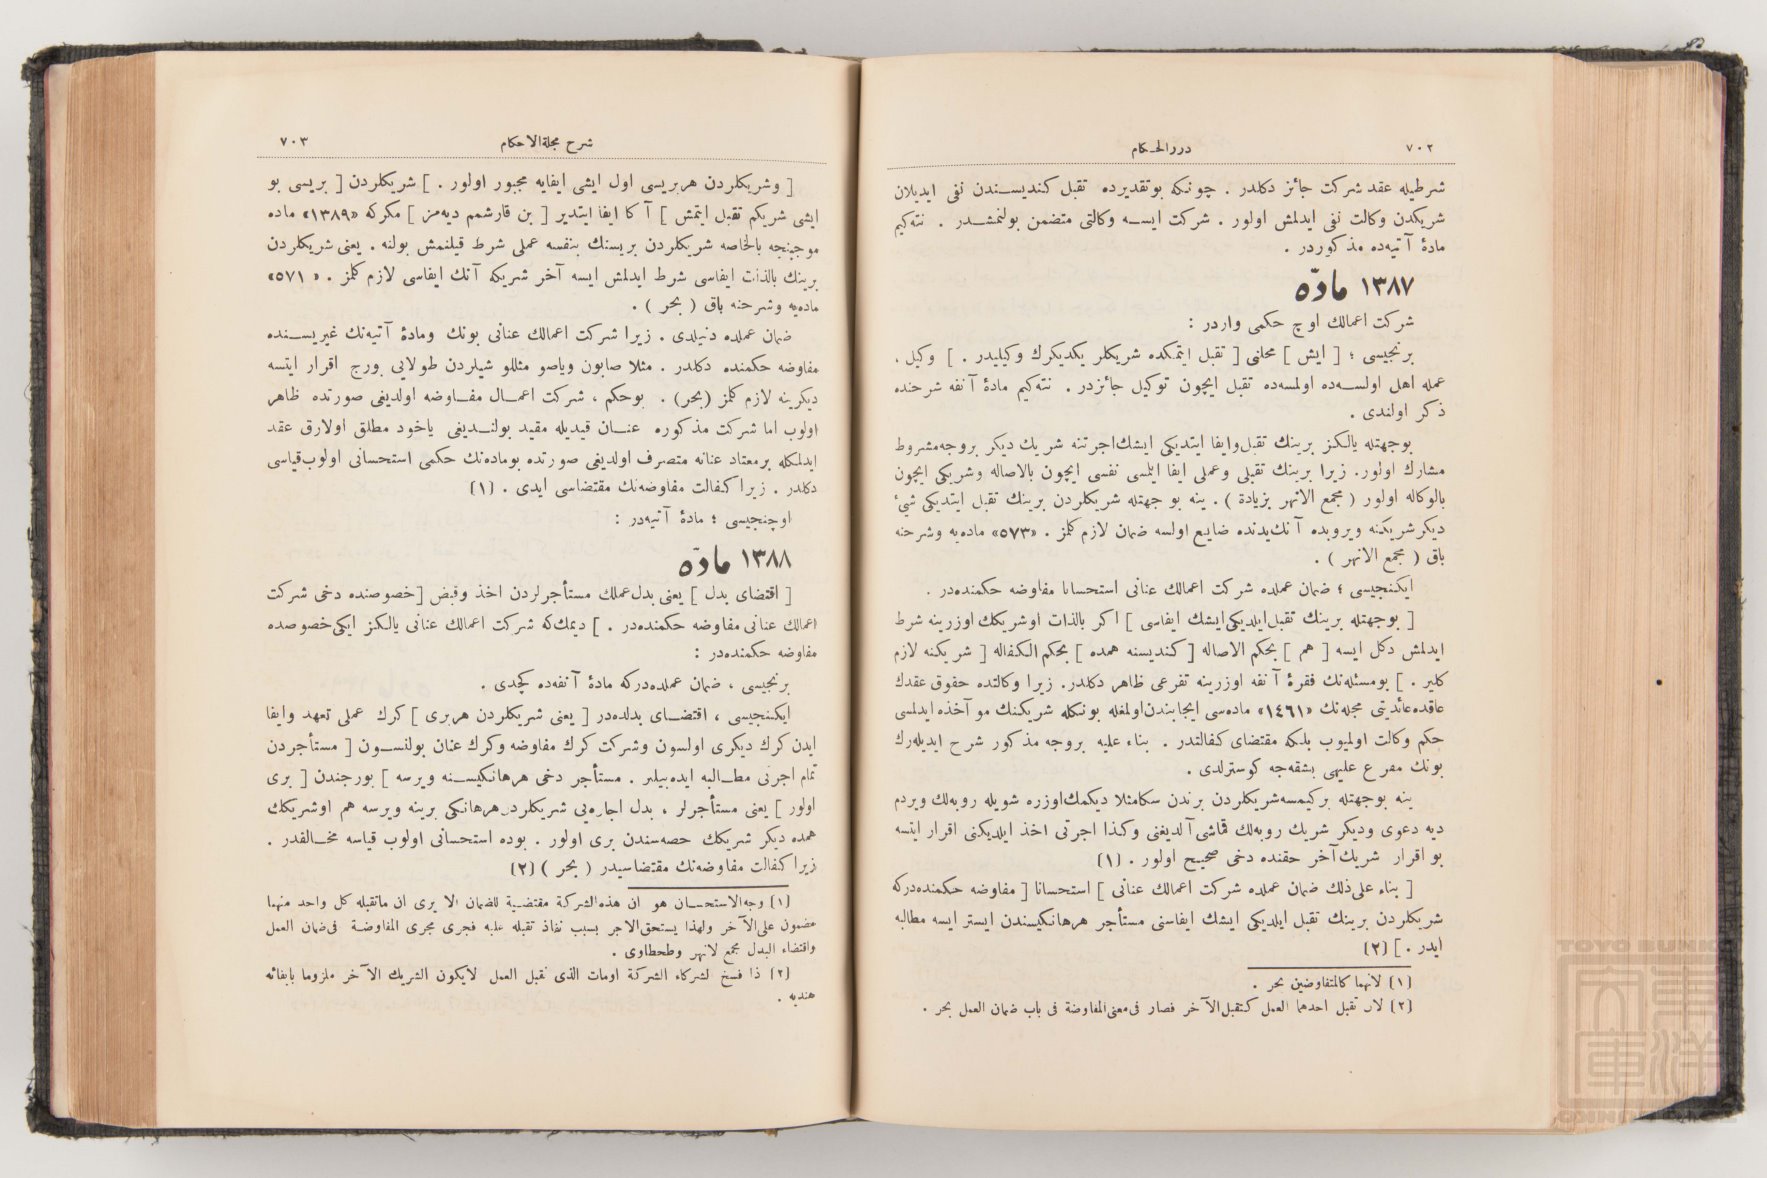 ٧٠٢
دررالحكام
شرطيله عقد شركت جائز دكلدر . چونكه بوتقديرده تقبل كنديسندن نفى ايديلان
شريكدن وكالت نفى ايدلمش اولور . شركت ايسه وكالتى متضمن بولنمشدر . نته‌كيم
مادۀ آتيه‌ده مذكوردر .
١٣٨٧ مادّه
شركت اعمالك اوچ حكمى واردر :
برنجيسى ؛ [ ايش ] محلنى [ تقبل ايتمكده شريكلر يكديكرك وكيليدر . ] وكيل ،
عمله اهل اولسه‌ده اولمسه‌ده تقبل ايچون توكيل جائزدر . نته‌كيم مادۀ آنفه شرحنده
ذكر اولندى .
بوجهتله يالكز برينك تقبل‌وايفا ايتديكى ايشك‌اجرتنه شريك ديكر بروجه‌مشروط
مشارك اولور. زيرا برينك تقبلى وعملى ايفا ايلمسى نفسى ايچون بالاصاله وشريكى ايچون
بالوكاله اولور ( مجمع الانهر بزيادة ) . ينه بو جهتله شريكلردن برينك تقبل ايتديكى شئ
ديكرشريكنه ويروبده آنك‌يدنده ضايع اولسه ضمان لازم كلمز . «٥٧٣» ماده‌يه وشرحنه
باق ( مجمع الانهر ) .
ايكنجيسى ؛ ضمان عملده شركت اعمالك عنانى استحسانا مفاوضه حكمنده‌در .
[ بوجهتله برينك تقبل‌ايلديكى‌ايشك ايفاسى ] اكر بالذات اوشريكك اوزرينه شرط
ايدلمش دكل ايسه [ هم ] بحكم الاصاله [ كنديسنه همده ] بحكم الكفاله [ شريكنه لازم
كلير . ] بومسئله‌نك فقرۀ آنفه اوزرينه تفرعى ظاهر دكلدر. زيرا وكالتده حقوق عقدك
عاقده‌عائديتى مجله‌نك «١٤٦١» ماده‌سى ايجابندن‌اولمغله بونكله شريكنك مؤآخذه ايدلمسى
حكم وكالت اولميوب بلكه مقتضاى كفالتدر . بناء عليه بروجه مذكور شرح ايديله‌رك
بونك مفرع عليهى بشقه‌جه كوسترلدى .
ينه بوجهتله بركيمسه‌شريكلردن برندن سكامثلا ديكمك‌اوزره شويله روبه‌لك ويردم
ديه دعوى وديكر شريك روبه‌لك قماشى‌آلديغنى وكذا اجرتى اخذ ايلديكنى اقرار ايتسه
بو اقرار شريك‌آخر حقنده دخى صحيح اولور . (١)
[ بناء على‌ذلك ضمان عملده شركت اعمالك عنانى ] استحسانا [ مفاوضه حكمنده‌دركه
شريكلردن برينك تقبل ايلديكى ايشك ايفاسنى مستأجر هرهانكيسندن ايستر ايسه مطالبه
ايدر . ] (٢)
(١) لانهما كالمتفاوضين بحر .
(٢) لان تقبل احدهما العمل كتقبل‌الآخر فصار فى‌معنى‌المفاوضة فى باب ضمان العمل بحر .
شرح مجلةالاحكام
٧٠٣
[ وشريكلردن هربريسى اول ايشى ايفايه مجبور اولور . ] شريكلردن [ بريسى بو
ايشى شريكم تقبل ايتمش ] آكا ايفا ايتدير [ بن قارشمم ديه‌مز ] مكركه «١٣٨٩» ماده
موجبنجه بالخاصه شريكلردن بريسنك بنفسه عملى شرط قيلنمش بولنه . يعنى شريكلردن
برينك بالذات ايفاسى شرط ايدلمش ايسه آخر شريكه آنك ايفاسى لازم كلمز . «٥٧١»
ماده‌يه وشرحنه باق ( بحر ) .
ضمان عملده دنيلدى . زيرا شركت اعمالك عنانى بونك ومادۀ آتيه‌نك غيريسنده
مفاوضه حكمنده دكلدر . مثلا صابون وياصو مثللو شيلردن طولايى بورج اقرار ايتسه
ديكرينه لازم كلمز (بحر) . بوحكم ، شركت اعمال مفاوضه اولديغى صورتده ظاهر
اولوب اما شركت مذكوره عنان قيديله مقيد بولنديغى ياخود مطلق اولارق عقد
ايدلمكله برمعتاد عنانه متصرف اولديغى صورتده بوماده‌نك حكمى استحسانى اولوب‌قياسى
دكلدر . زيرا كفالت مفاوضه‌نك مقتضاسى ايدى . (١)
اوچنجيسى ؛ مادۀ آتيه‌در :
١٣٨٨ مادّه
[ اقتضاى بدل ] يعنى بدل‌عملك مستأجرلردن اخذ وقبض [خصوصنده دخى شركت
اعمالك عنانى مفاوضه حكمنده‌در . ] ديمك‌كه شركت اعمالك عنانى يالكز ايكى‌خصوصده
مفاوضه حكمنده‌در :
برنجيسى ، ضمان عملده‌دركه مادۀ آنفه‌ده كچدى .
ايكنجيسى ، اقتضاى بدلده‌در [ يعنى شريكلردن هربرى ] كرك عملى تعهد وايفا
ايدن كرك ديكرى اولسون وشركت كرك مفاوضه وكرك عنان بولنسون [ مستأجردن
تمام اجرتى مطالبه ايده‌بيلير . مستأجر دخى هرهانكيسنه ويرسه ] بورجندن [ برى
اولور ] يعنى مستأجرلر ، بدل اجاره‌يى شريكلردن‌هرهانكى برينه ويرسه هم اوشريكك
همده ديكر شريكك حصه‌سندن برى اولور . بوده استحسانى اولوب قياسه مخالفدر .
زيرا كفالت مفاوضه‌نك مقتضاسيدر ( بحر ) (٢)
(١) وجه‌الاستحسان هو ان هذه‌الشركة مقتضية للضمان الا يرى ان ماتقبله كل واحد منهما
مضمون على‌الآخر ولهذا يستحق‌الاجر بسبب نفاذ تقبله عليه فجرى مجرى المفاوضة فى‌ضمان العمل
واقتضاء البدل مجمع لانهر وطحطاوى .
(٢) ذا فسخ لشركاء الشركة اومات الذى تقبل العمل لايكون الشريك الآخر ملزوما بايفائه
هنديه .
TOYO BUNKO
東洋
文庫